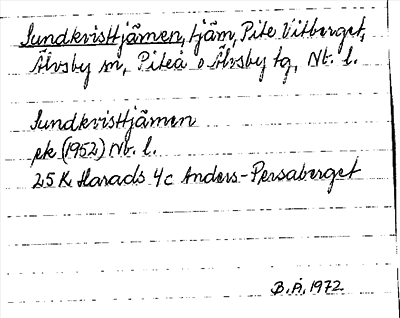 Sundkvisttjämen, tjäm, Pite Vitberget,
Älvsby sn, Piteå o Älvsby tg, Nb. l.
Sundkvisttjämen
ek (1952) Nb. l.
25 K Harads 4c Anders-Persaberget
B. Å. 1972